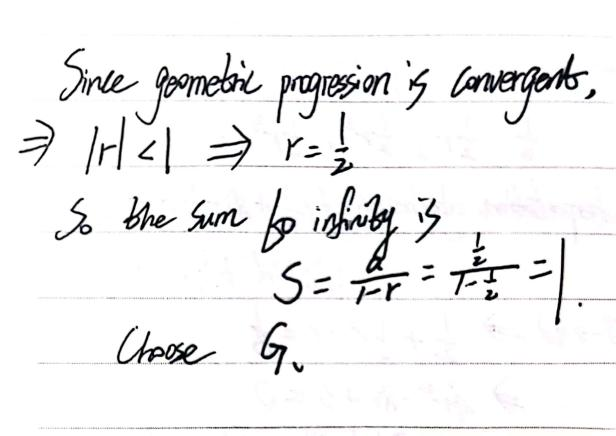 Since geometric progression is convergent,
⇒ |r| < 1 ⇒ r = 1/2
So the sum to infinity is
S = a/(1-r) = (1/2)/(1-1/2) = 1.
Choose G.